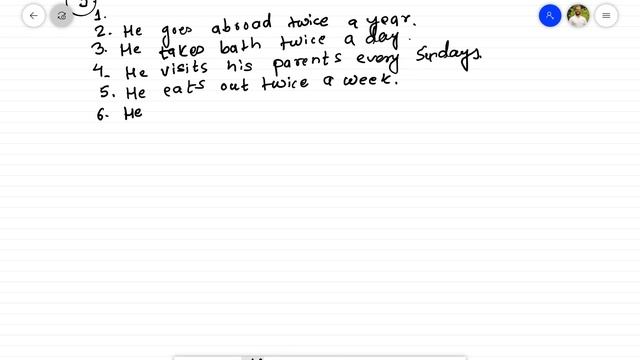 1.
2. He goes abroad twice a year.
3. He takes bath twice a day.
4. He visits his parents every Sundays.
5. He eats out twice a week.
6. He